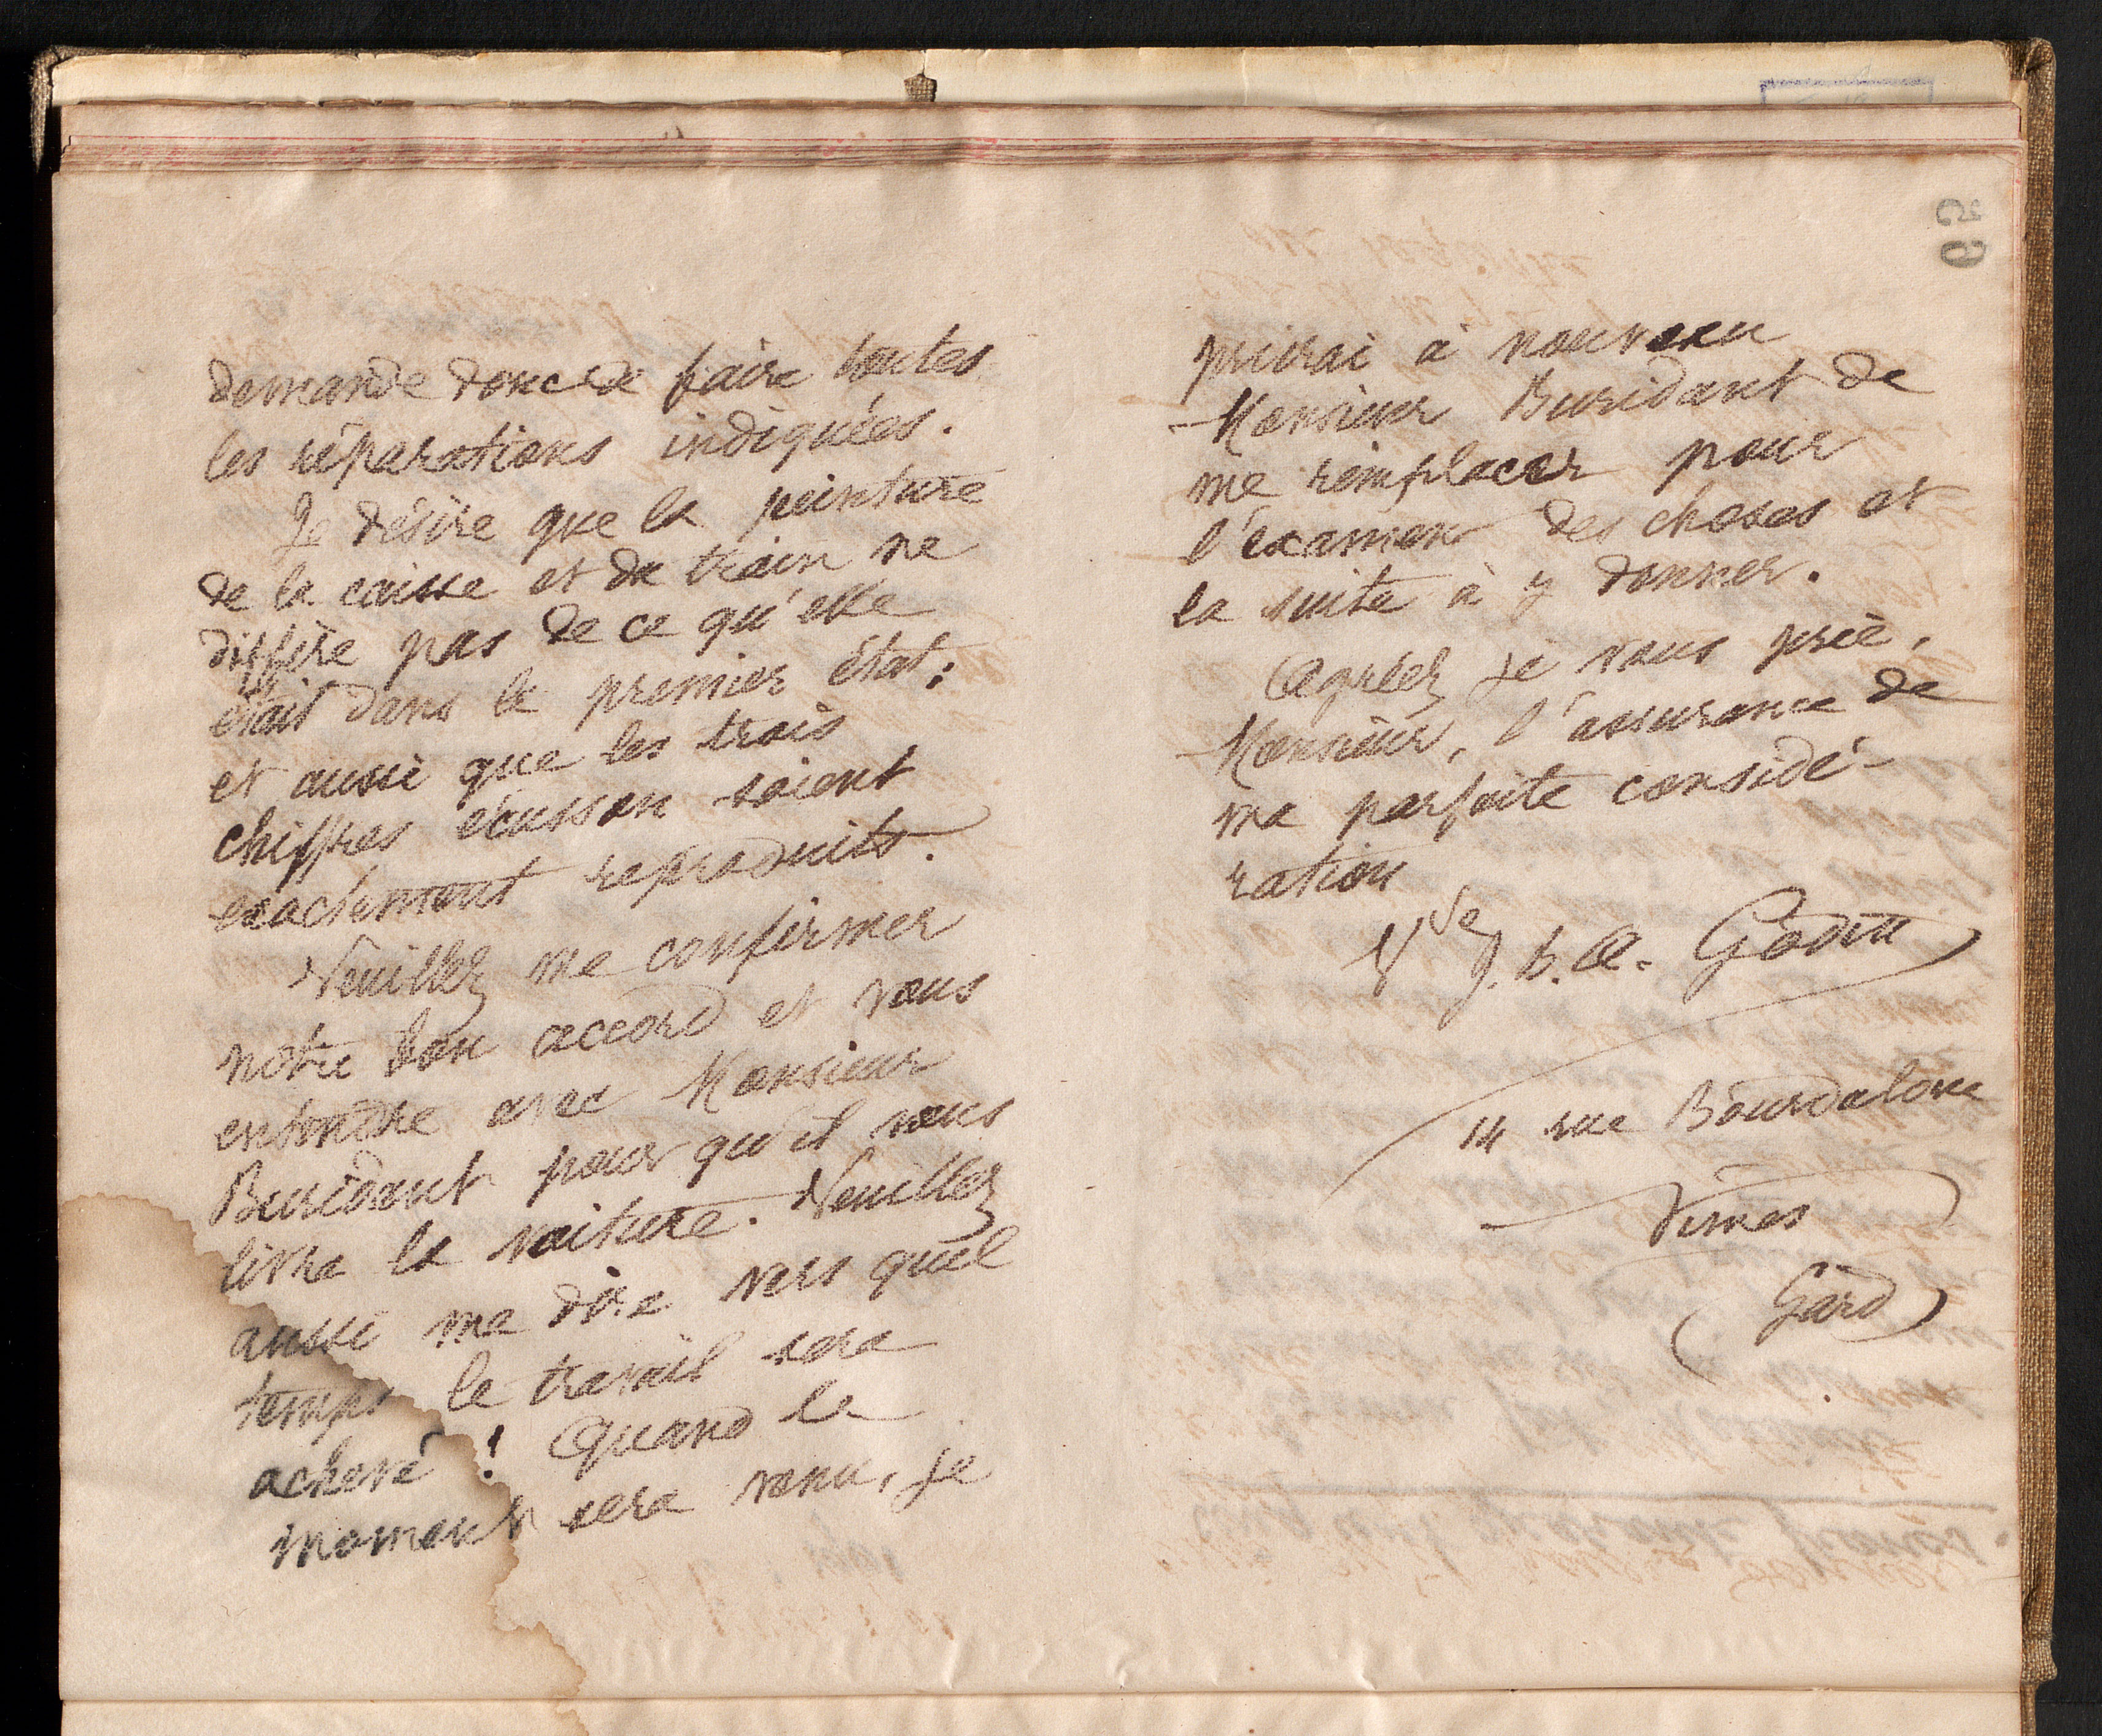 demande donc de faire toutes
les réparations indiquées.
Je désire que la peinture
de la caisse et du train ne
diffère pas de ce qu'elle
était dans le premier état;
et aussi que les trois
chiffres écusson soient
exactement reproduits.
Veuillez me confirmer
notre bon accord et vous
entendre avec Monsieur
Buridant pour qu'il vous
livre la voiture. Veuillez
aussi me dire vers quel
temps le travail sera
achevé ! Quand le
moment sera venu, je
59
prierai à nouveau
Monsieur Buridant de
me remplacer pour
l'examen des choses et
la suite à y donner.
Agréez je vous prie,
Monsieur, l'assurance de
ma parfaite considé-
ration
Vve J. B. A. Godin
14 rue Bourdaloue
Nîmes
(Gard)